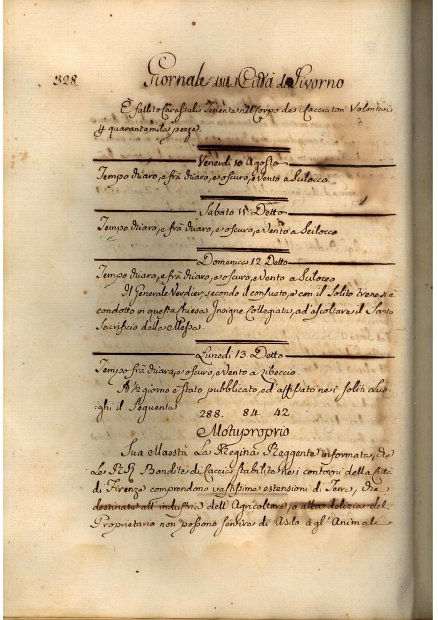 328
Giornale della Città di Livorno
È fallito Tenente nel Corpo dei Cacciatori Volontari
p quarantamila pezze.
Venerdi 10 Agosto
Tempo chiaro, e frà chiaro, e oscuro, e vento a Scilocco
Sabato 11 Detto
Tempo chiaro, e frà chiaro, e oscuro, e vento a Scilocco
Domenica 12 Detto
Tempo chiaro, e frà chiaro, e oscuro, e vento a Scilocco
Il Generale Verdier, secondo il consueto, e con il solito treno si è
condotto in questa Chiesa Insigne Collegiata, ad'ascoltare il Santo
Sacrifizio della Messa.
Lunedi 13 Detto
Tempo frà chiaro, e oscuro, e vento a Libeccio.
giorno è stato pubblicato, ed affissato nei soliti Luo-
ghi il seguente
288. 84 42
Motuproprio
Sua Maestà La Regina Reggente informata, che
Le RR. Bandite di Caccia stabilite nei contorni della Città
di Firenze comprendono vastissime estensioni di Terre, che
destinate all'industria dell'Agricoltore, o alla delizia del
Proprietario non possono servire di Asilo a gl'Animali